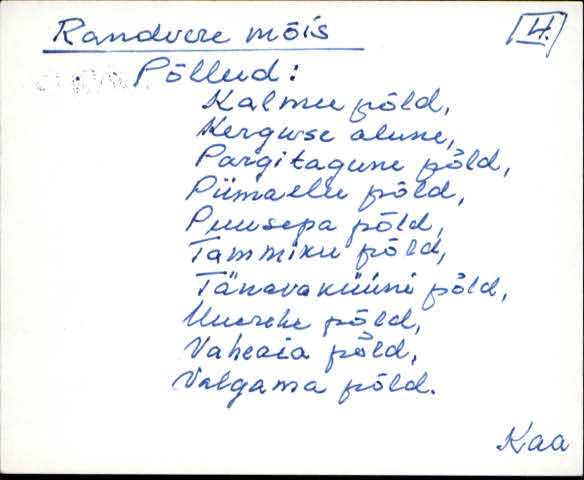 Randvere mõis
4.
Põllud:
Kalmu põld,
Kerguse alune,
Pargitagune põld,
Piimaelu põld,
Puusepa põld,
Tammiku põld,
Tänavaküüni põld,
põld,
Vaheaia põld,
Valgama põld.
Kaa